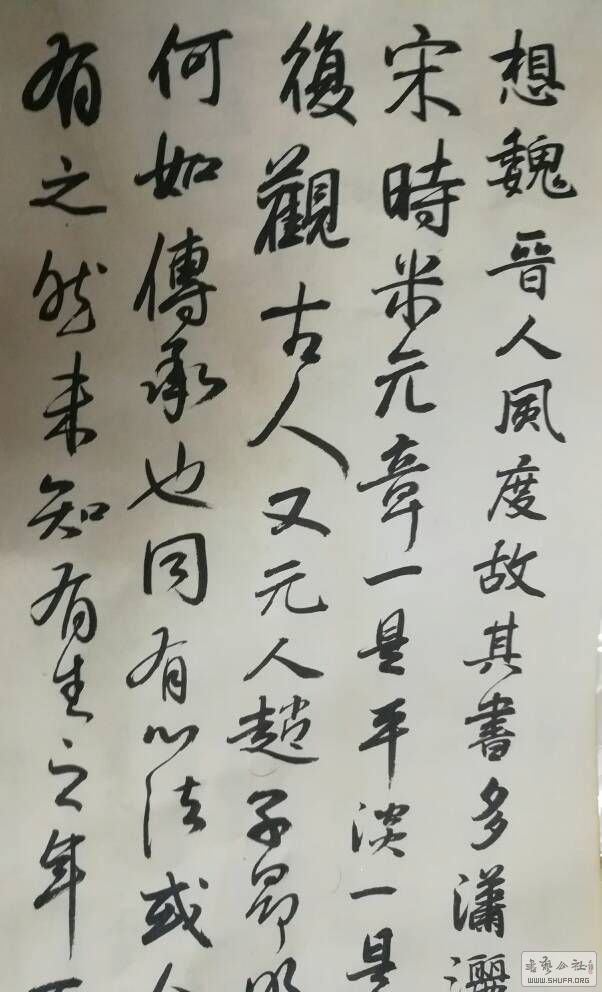 想魏晋人風度故其書多瀟灑
宋時米元章一是平淡一是
復觀古人又元人趙子昂
何如傳承也同有心法或
有之然未知有生之年
書艺公社
WWW.SHUFA.ORG